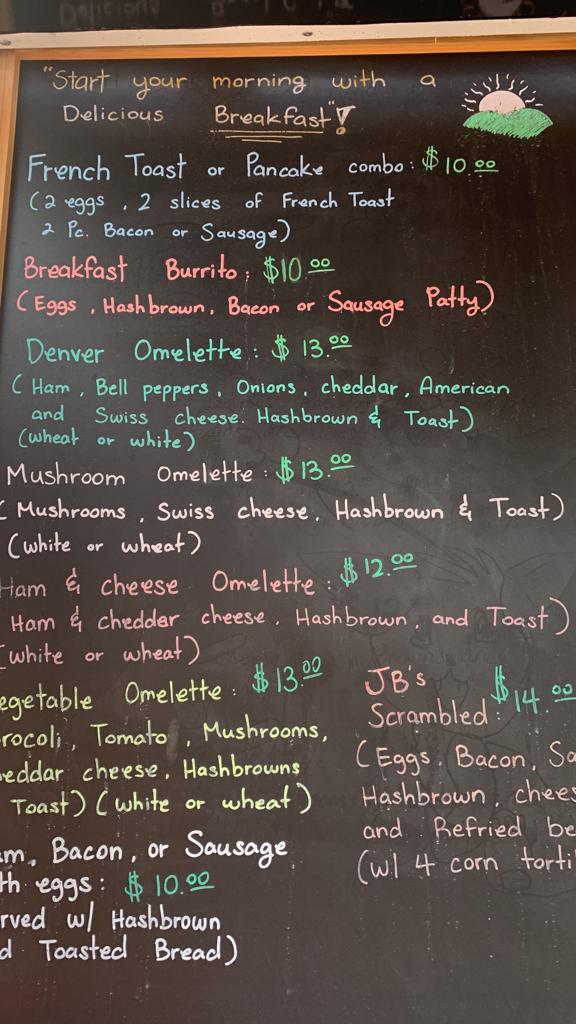 "Start your morning with a
Delicious Breakfast"!
French Toast or Pancake combo: $10.00
(2 eggs, 2 slices of French Toast
2 Pc. Bacon or Sausage)
Breakfast Burrito: $10.00
(Eggs, Hashbrown, Bacon or Sausage Patty)
Denver Omelette: $13.00
(Ham, Bell peppers, Onions, cheddar, American
and Swiss cheese. Hashbrown & Toast)
(wheat or white)
Mushroom Omelette: $13.00
(Mushrooms, Swiss cheese, Hashbrown & Toast)
(white or wheat)
Ham & cheese Omelette: $12.00
Ham & cheddar cheese, Hashbrown, and Toast)
(white or wheat)
egetable Omelette: $13.00
rocoli, Tomato, Mushrooms,
eddar cheese, Hashbrowns
Toast) (white or wheat)
JB's $14.00
Scrambled:
(Eggs, Bacon, Sa
Hashbrown, chees
and Refried be
(w/ 4 corn torti
am, Bacon, or Sausage
th eggs: $10.00
rved w/ Hashbrown
d Toasted Bread)